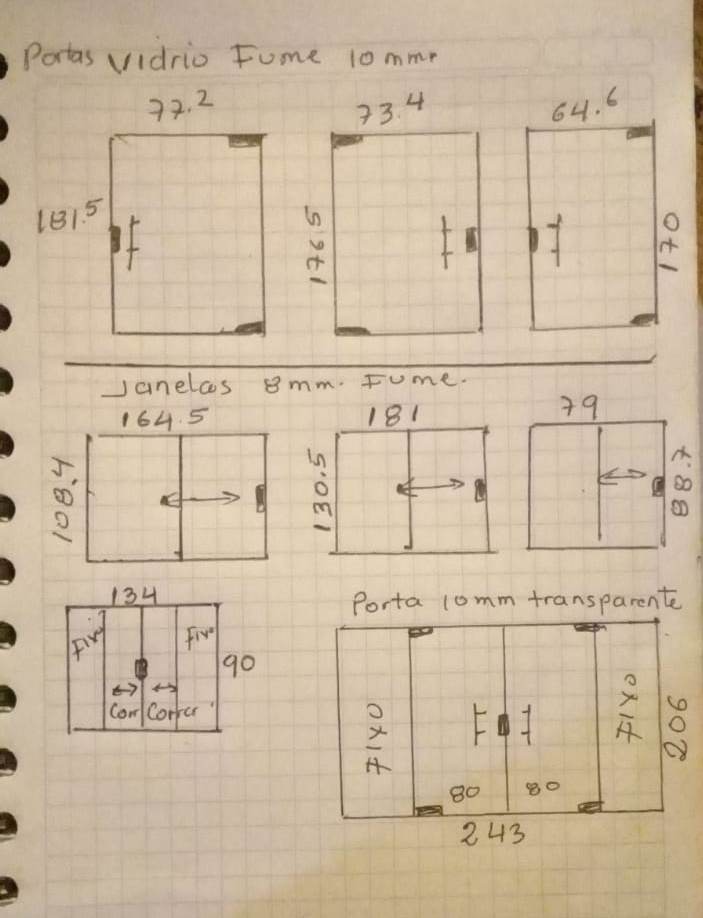 Portas vidrio Fume 10mm.
77.2
73.4
64.6
181.5
176.5
170
Janelas 8mm. Fume.
164.5
181
79
108.4
130.5
88.7
134
Porta 10mm transparente
Fixo
Fixo
90
Corr
Correr
FIXO
FIXO
206
80
80
243